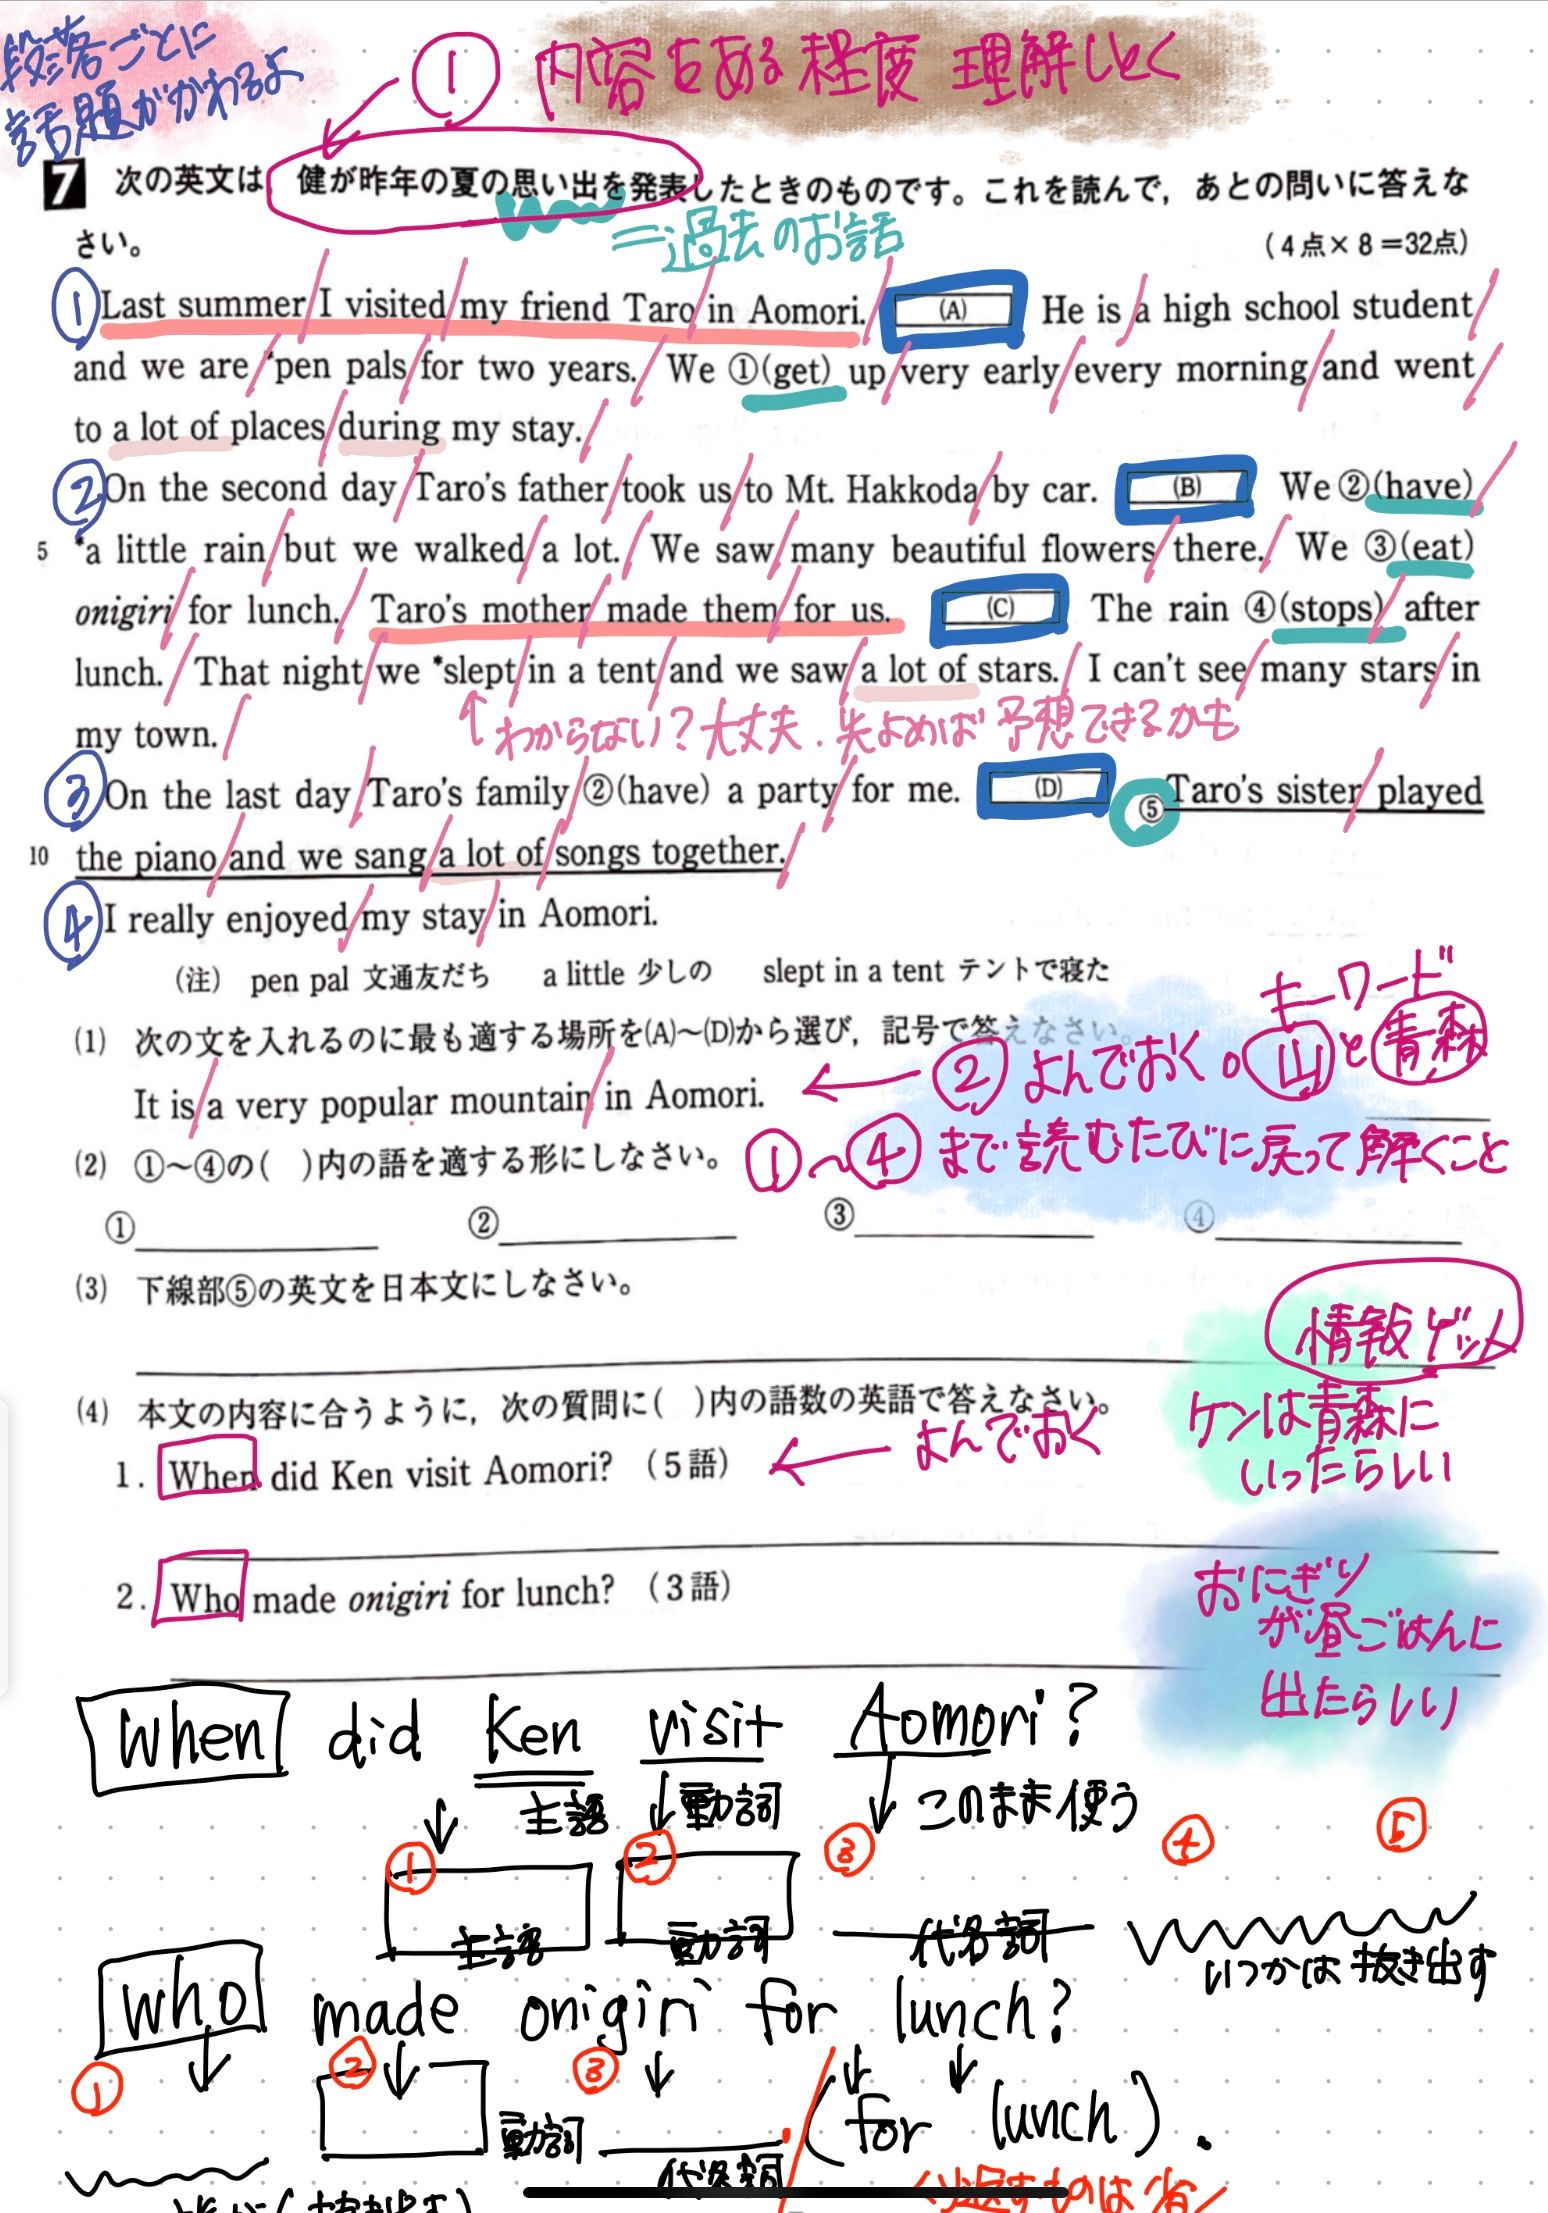 段落ごとに
話題がかわるよ
① 内容をある程度 理解しとく
7 次の英文は，健が昨年の夏の思い出を発表したときのものです。これを読んで，あとの問いに答えな
さい。
=過去のお話
(4点×8=32点)
① Last summer I visited my friend Taro in Aomori. (A) He is a high school student
and we are *pen pals for two years. We ①(get) up very early every morning and went
to a lot of places during my stay.
② On the second day Taro's father took us to Mt. Hakkoda by car. (B) We ②(have)
5 *a little rain but we walked a lot. We saw many beautiful flowers there. We ③(eat)
onigiri for lunch. Taro's mother made them for us. (C) The rain ④(stops) after
lunch. That night we *slept in a tent and we saw a lot of stars. I can't see many stars in
my town.
↑わからない？大丈夫．先よめば予想できるかも
③ On the last day Taro's family ②(have) a party for me. (D) ⑤Taro's sister played
10 the piano and we sang a lot of songs together.
④ I really enjoyed my stay in Aomori.
(注) pen pal 文通友だち a little 少しの slept in a tent テントで寝た
キーワード
(1) 次の文を入れるのに最も適する場所を(A)～(D)から選び，記号で答えなさい。
It is a very popular mountain in Aomori.
← ② よんでおく。山と青森
(2) ①～④の( )内の語を適する形にしなさい。
①～④まで読むたびに戻って解くこと
① ② ③ ④
(3) 下線部⑤の英文を日本文にしなさい。
情報ゲット
ケンは青森に
いったらしい
(4) 本文の内容に合うように，次の質問に( )内の語数の英語で答えなさい。
1. When did Ken visit Aomori? (5語)
← よんでおく
2. Who made onigiri for lunch? (3語)
おにぎり
が昼ごはんに
出たらしい
When did Ken visit Aomori?
↓ 主語 ↓動詞 ↓このまま使う
① ② ③ ④ ⑤
主語 動詞 代名詞 いつかは抜き出す
who made onigiri for lunch?
① ↓ ② ↓ ③ ↓ ↓ ↓
動詞 代名詞 . (for lunch).